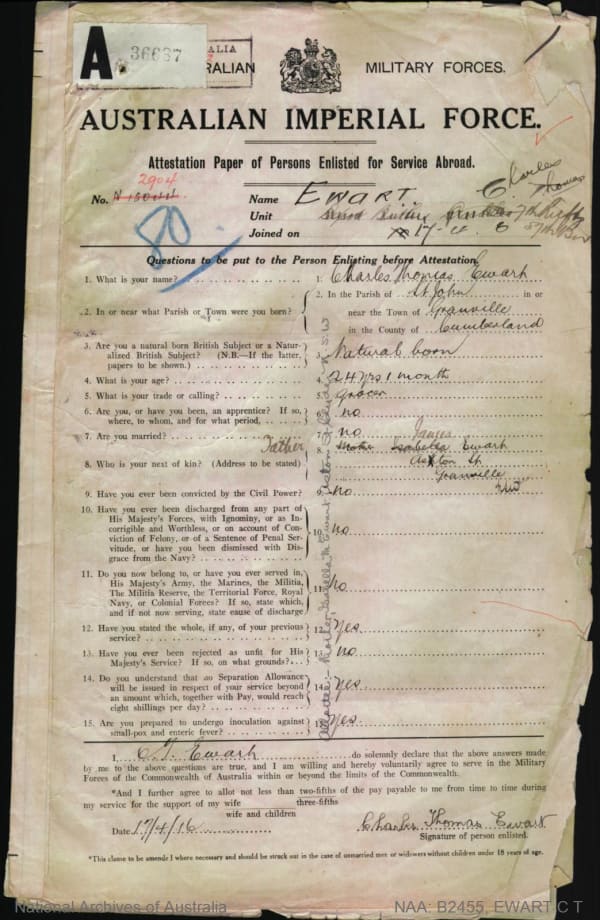 A 36687 RALIA
RALIAN MILITARY FORCES.
AUSTRALIAN IMPERIAL FORCE.
Attestation Paper of Persons Enlisted for Service Abroad.
2904
No. Name EWART. Charles Thomas
Unit
Joined on 17.4.
80
Questions to be put to the Person Enlisting before Attestation.
1. What is your name? 1. Charles Thomas Ewart
2. In or near what Parish or Town were you born? 2. In the Parish of St John in or
near the Town of Granville
in the County of Cumberland
3. Are you a natural born British Subject or a Natur-
alized British Subject? (N.B.—If the latter,
papers to be shown.) 3. Natural born
4. What is your age? 4. 24 yrs 1 month
5. What is your trade or calling? 5. Grocer
6. Are you, or have you been, an apprentice? If so,
where, to whom, and for what period 6. no
7. Are you married? 7. no
8. Who is your next of kin? (Address to be stated) Father 8. James
Isabella Ewart
St
Granville
9. Have you ever been convicted by the Civil Power? 9. no
10. Have you ever been discharged from any part of
His Majesty's Forces, with Ignominy, or as In-
corrigible and Worthless, or on account of Con-
viction of Felony, or of a Sentence of Penal Ser-
vitude, or have you been dismissed with Dis-
grace from the Navy? 10. no
11. Do you now belong to, or have you ever served in,
His Majesty's Army, the Marines, the Militia,
The Militia Reserve, the Territorial Force, Royal
Navy, or Colonial Forces? If so, state which,
and if not now serving, state cause of discharge 11. no
12. Have you stated the whole, if any, of your previous
service? 12. Yes
13. Have you ever been rejected as unfit for His
Majesty's Service? If so, on what grounds? 13. no
14. Do you understand that no Separation Allowance
will be issued in respect of your service beyond
an amount which, together with Pay, would reach
eight shillings per day? 14. yes
15. Are you prepared to undergo inoculation against
small-pox and enteric fever? 15. yes
I, C.T. Ewart do solemnly declare that the above answers made
by me to the above questions are true, and I am willing and hereby voluntarily agree to serve in the Military
Forces of the Commonwealth of Australia within or beyond the limits of the Commonwealth.
*And I further agree to allot not less than two-fifths of the pay payable to me from time to time during
three-fifths
my service for the support of my wife
wife and children
Date 17/4/16 Charles Thomas Ewart
Signature of person enlisted.
*This clause to be amended where necessary and should be struck out in the case of unmarried men or widowers without children under 18 years of age.
National Archives of Australia NAA: B2455, EWART C T